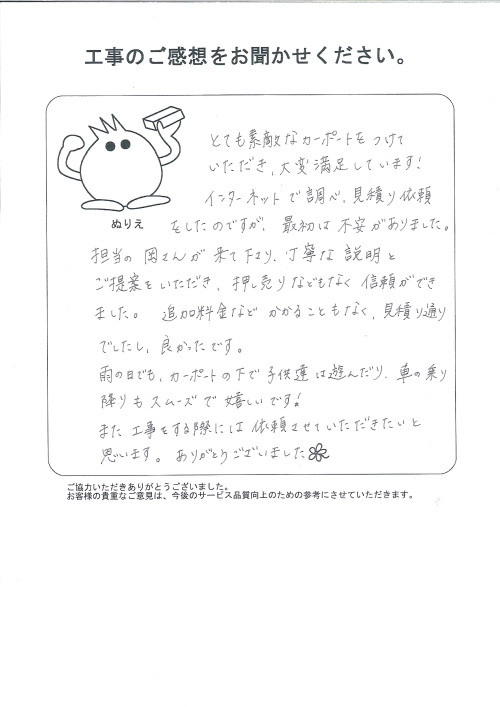 工事のご感想をお聞かせください。
とても素敵なカーポートをつけて
いただき、大変満足しています!
インターネットで調べ、見積り依頼
ぬりえ
をしたのですが、最初は不安がありました。
担当の岡さんが来て下さり、丁寧な説明と
ご提案をいただき、押し売りなどもなく信頼ができ
ました。追加料金などかかることもなく、見積り通り
でしたし、良かったです。
雨の日でも、カーポートの下で子供達は遊んだり、車の乗り
降りもスムーズで嬉しいです!
また工事をする際には依頼させていただきたいと
思います。ありがとうございました
ご協力いただきありがとうございました。
お客様の貴重なご意見は、今後のサービス品質向上のための参考にさせていただきます。